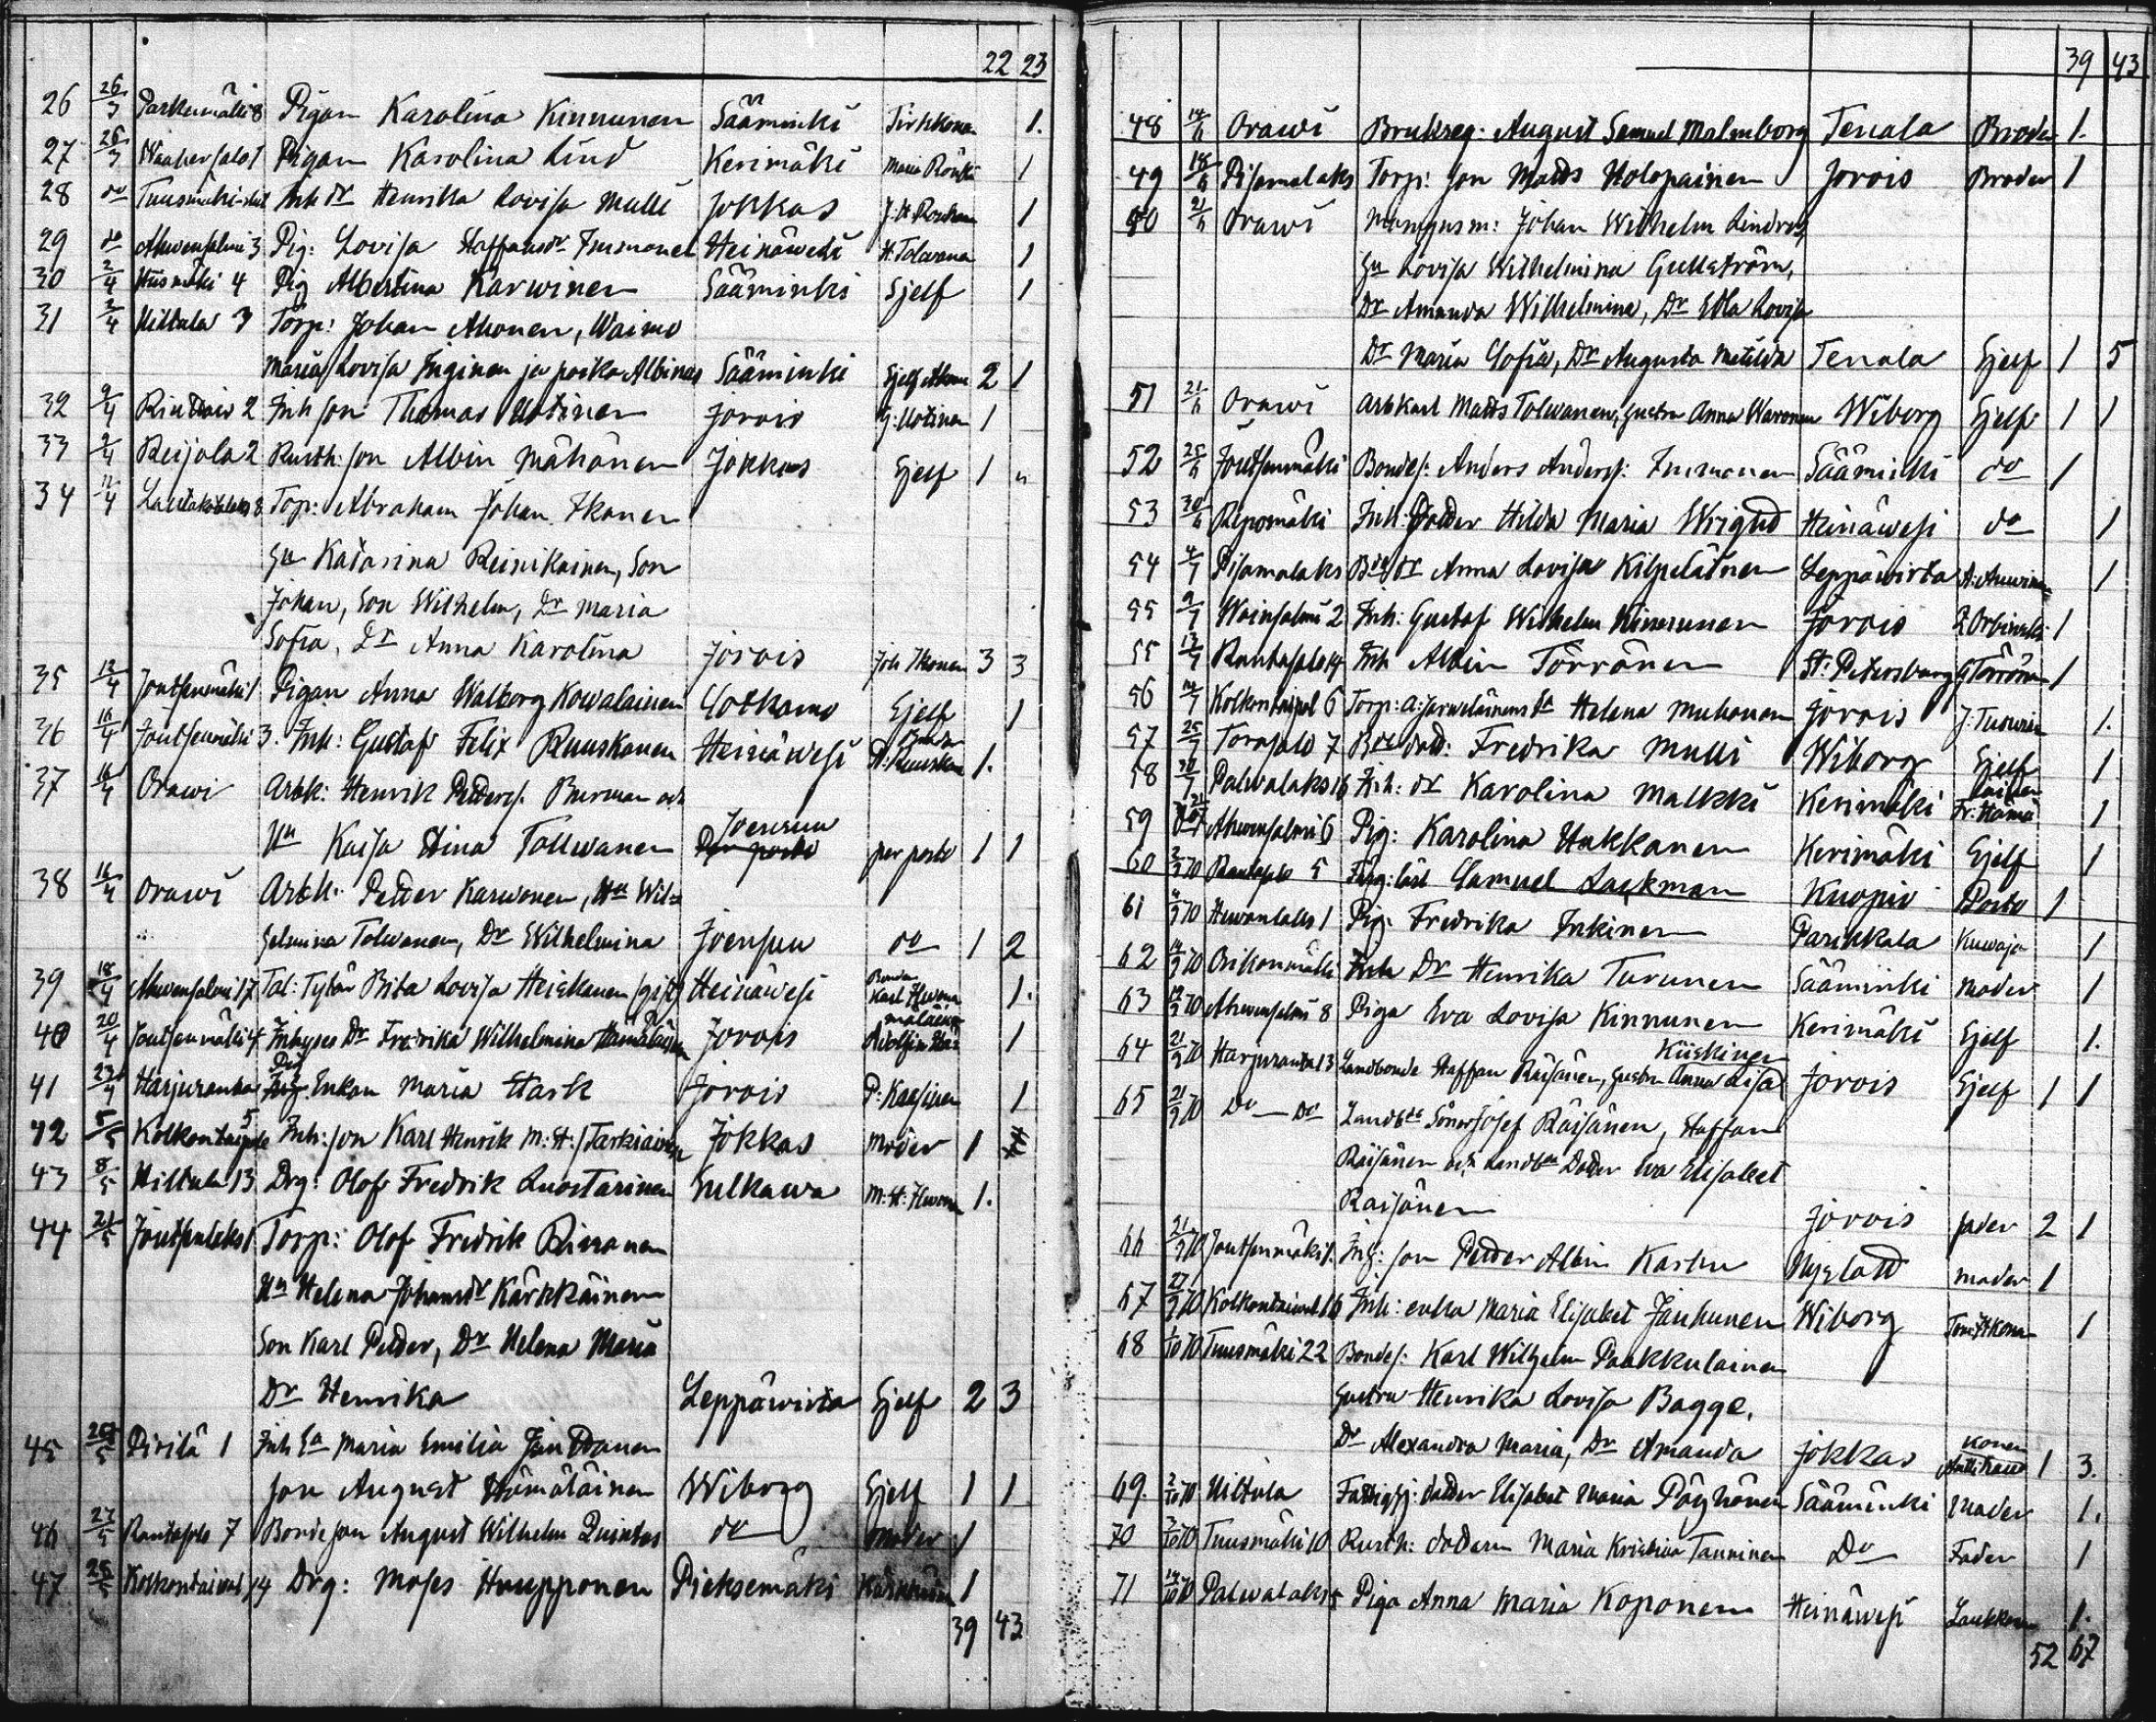 22 23
26 26/3 Parkumäki 8 Pigan Karolina Kinnunen Sääminki Tirkkonen 1.
27 26/3 Waahersalo 1 Pigan Karolina Lind Kerimäki Maria 1
28 do Tuusmäki Inh dr Henrika Lovisa Mulli Jokkas 1
29 do Ahvensalmi 3 Pig: Lovisa Staffansdr Immonen Heinäwesi H. Tolvanen 1
30 2/4 Hiismäki 4 Pig Albertina Karwinen Sääminki Sjelf 1
31 2/4 Hiltula 3 Torp: Johan Ahonen, Waimo
Maria Lovisa Inginen ja poika Albinus Sääminki Sjelf Ahonen 2 1
32 9/4 2 Inh son Thomas Uotinen Jorois G: Uotinen 1
33 9/4 Reijola 2 Rusth: son Albin Mähönen Jokkas Sjelf 1 "
34 11/4 8 Torp: Abraham Johan Ikonen
Hu Katarina Reinikainen, Son
Johan, Son Wilhelm, Dr Maria
Sofia, Dr Anna Karolina Jorois Joh Ikonen 3 3
35 12/4 Joutsenmäki 1 Pigan Anna Walborg Kowalainen Sotkamo Sjelf 1
36 16/4 Joutsenmäki 3. Inh: Gustaf Felix Ruuskanen Heinäwesi Ruuskanen 1.
37 16/4 Orawi Arbk: Henrik Petters: Burman och
Hu Kaisa Stina Tollwanen Joensuu per posto 1 1
38 16/4 Orawi Arbk: Petter Karwonen, Hu Wil=
helmina Tolwanen, Dr Wilhelmina Joensuu do 1 2
39 18/4 Ahwensalmi 17 Tal: Tytär Brita Lovisa Heiskanen (gift) Heinäwesi Bonden Karl 1.
40 20/4 Joutsenmäki 4 Inhyses Dr Fredrika Wilhelmina Hämäläinen Jorois 1
41 23/4 Harjuranta Enkan Maria Stark Jorois P: Kaasinen 1
42 5/5 Kolkontaipale 5 Inh: son Karl Henrik M: H: Tarkiainen Jokkas Moder 1
43 8/5 Hiltula 13 Drg: Olof Fredrik Luostarinen Sulkawa M: H: 1.
44 21/5 Joutsenlaks 1 Torp: Olof Fredrik Rissanen
Hu Helena Johansdr Kärkkäinen
Son Karl Petter, Dr Helena Maria
Dr Henrika Leppäwirta Sjelf 2 3
45 5 Pirilä 1 Inh Ea Maria Emilia
son August Hämäläinen Wiborg Sjelf 1 1
46 27/5 Rantasalo 7 Bondeson August Wilhelm Quintus do Moder 1
47 28/5 Kolkontaival 14 Drg: Moses Huupponen Pieksemäki 1
39 43
39 43
48 14/6 Orawi Bruksreg: August Samuel Malmborg Tenala Broder 1.
49 18/6 Pisamalaks Torp: son Matts Holopainen Jorois Broder 1
50 21/6 Orawi Johan Wilhelm Lindros,
Hu Lovisa Wilhelmina Gullström,
Dr Amanda Wilhelmina, Dr Edla Lovisa
Dr Maria Sofia, Dr Augusta Matilda Tenala Sjelf 1 5
51 21/6 Orawi Arbkarl Matts Tolwanen, hustru Anna Waronen Wiborg Sjelf 1 1
52 25/6 Joutsenmäki Bondes: Anders Anders: Immonen Sääminki do 1
53 30/6 Repomäki Inh: Dotter Hilda Maria Wright Heinäwesi do 1
54 4/7 Pisamalaks Bde dr Anna Lovisa Kilpeläinen Leppäwirta 1
55 9/7 Woinsalmi 2 Inh: Gustaf Wilhelm Kinnunen Jorois 1
55 13/7 Rantasalo 14 Inh Albin Törrönen St: Petersburg G Törrönen 1
56 14/7 Kolkontaipal 6 Torp: a: Jarweläinens Ea Helena Muhonen Jorois 1.
57 25/7 Torasalo 7 Bde dott: Fredrika Mulli Wiborg Sjelf 1
58 30/7 Palwalaks 16 Inh: dr Karolina Malkki Kerimäki Fr: Hämäläinen 1
59 Ahwensalmi 6 Pig: Karolina Hakkanen Kerimäki Sjelf 1
60 2/9 70 Rantasalo 5 Färg: lärl Samuel Lackman Kuopio Posto 1
61 9 70 Hewonlaks 1 Pig: Fredrika Inkinen Parikkala Kuwaja 1
62 14/9 70 Oikonmäki Inh Dr Henrika Turunen Sääminki Moder 1
63 9 70 Ahwensalmi 8 Piga Eva Lovisa Kinnunen Kerimäki Sjelf 1.
64 21/9 70 Harjuranta 13 Landbonde Staffan Räisänen, hustru Anna Lisa Kiiskinen Jorois Sjelf 1 1
65 21/9 70 Do Do Landbde Söner Josef Räisänen, Staffan
Räisänen och Landbde Dotter Eva Elisabet
Räisänen Jorois fader 2 1
66 21/9 70 Joutsenmäki 1. Inh: son Petter Albin Karhu Nyslott moder 1
67 27/9 70 Kolkontaival 16 Inh: enka Maria Elisabet Jauhunen Wiborg 1
68 1/10 70 Tuusmäki 22 Bondes: Karl Wilhelm Paakkulainen
hustru Henrika Lovisa Bagge,
Dr Alexandra Maria, Dr Amanda Jokkas 1 3.
69 2/10 70 Hiltula Fattighj: dotter Elisabet Maria Pöyhönen Sääminki Moder 1.
70 7/10 70 Tuusmäki 10 Rusth: dottern Maria Kristina Tanninen Do Fader 1
71 14/10 70 Palwalaks 5 Piga Anna Maria Koponen Heinäwesi Laukkanen 1.
52 67